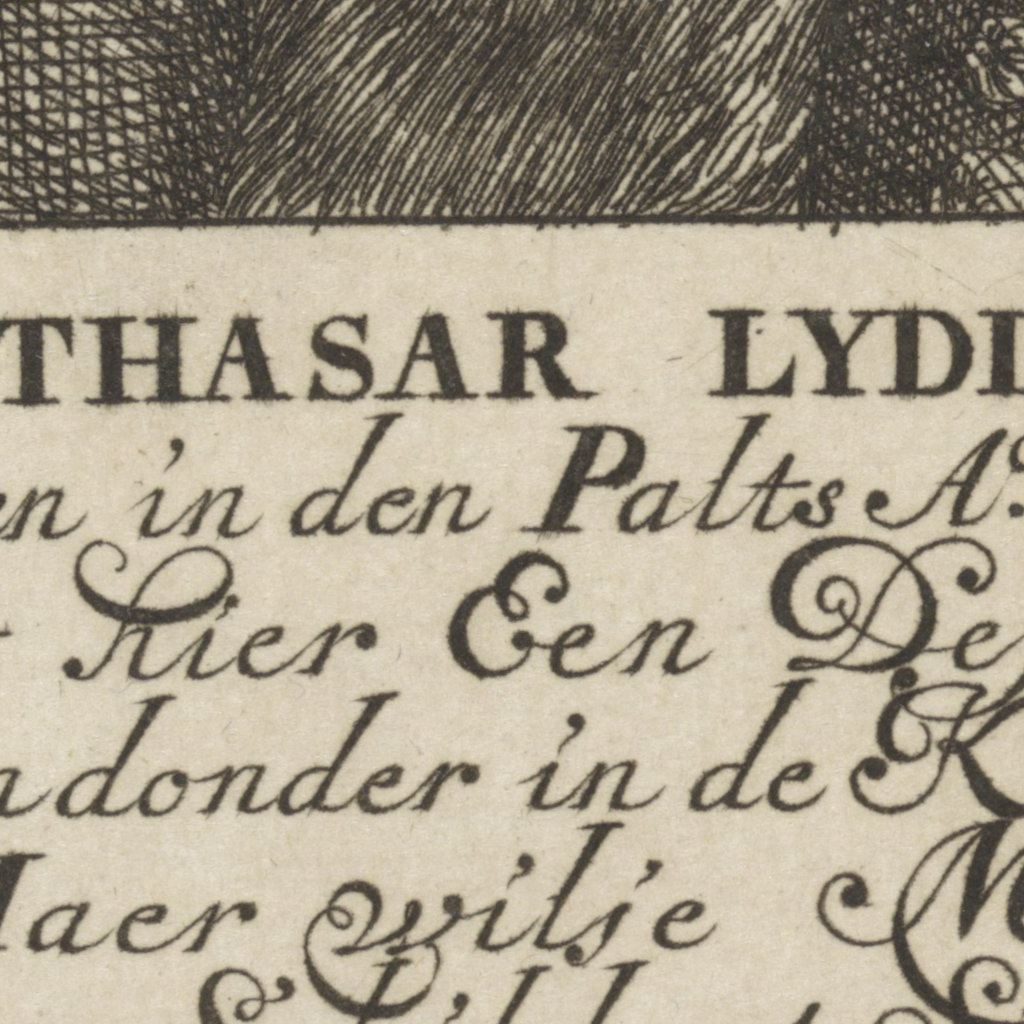 THASAR LYDI
en in den Palts Aº
hier Een De
donder in de K
Maer wilje M